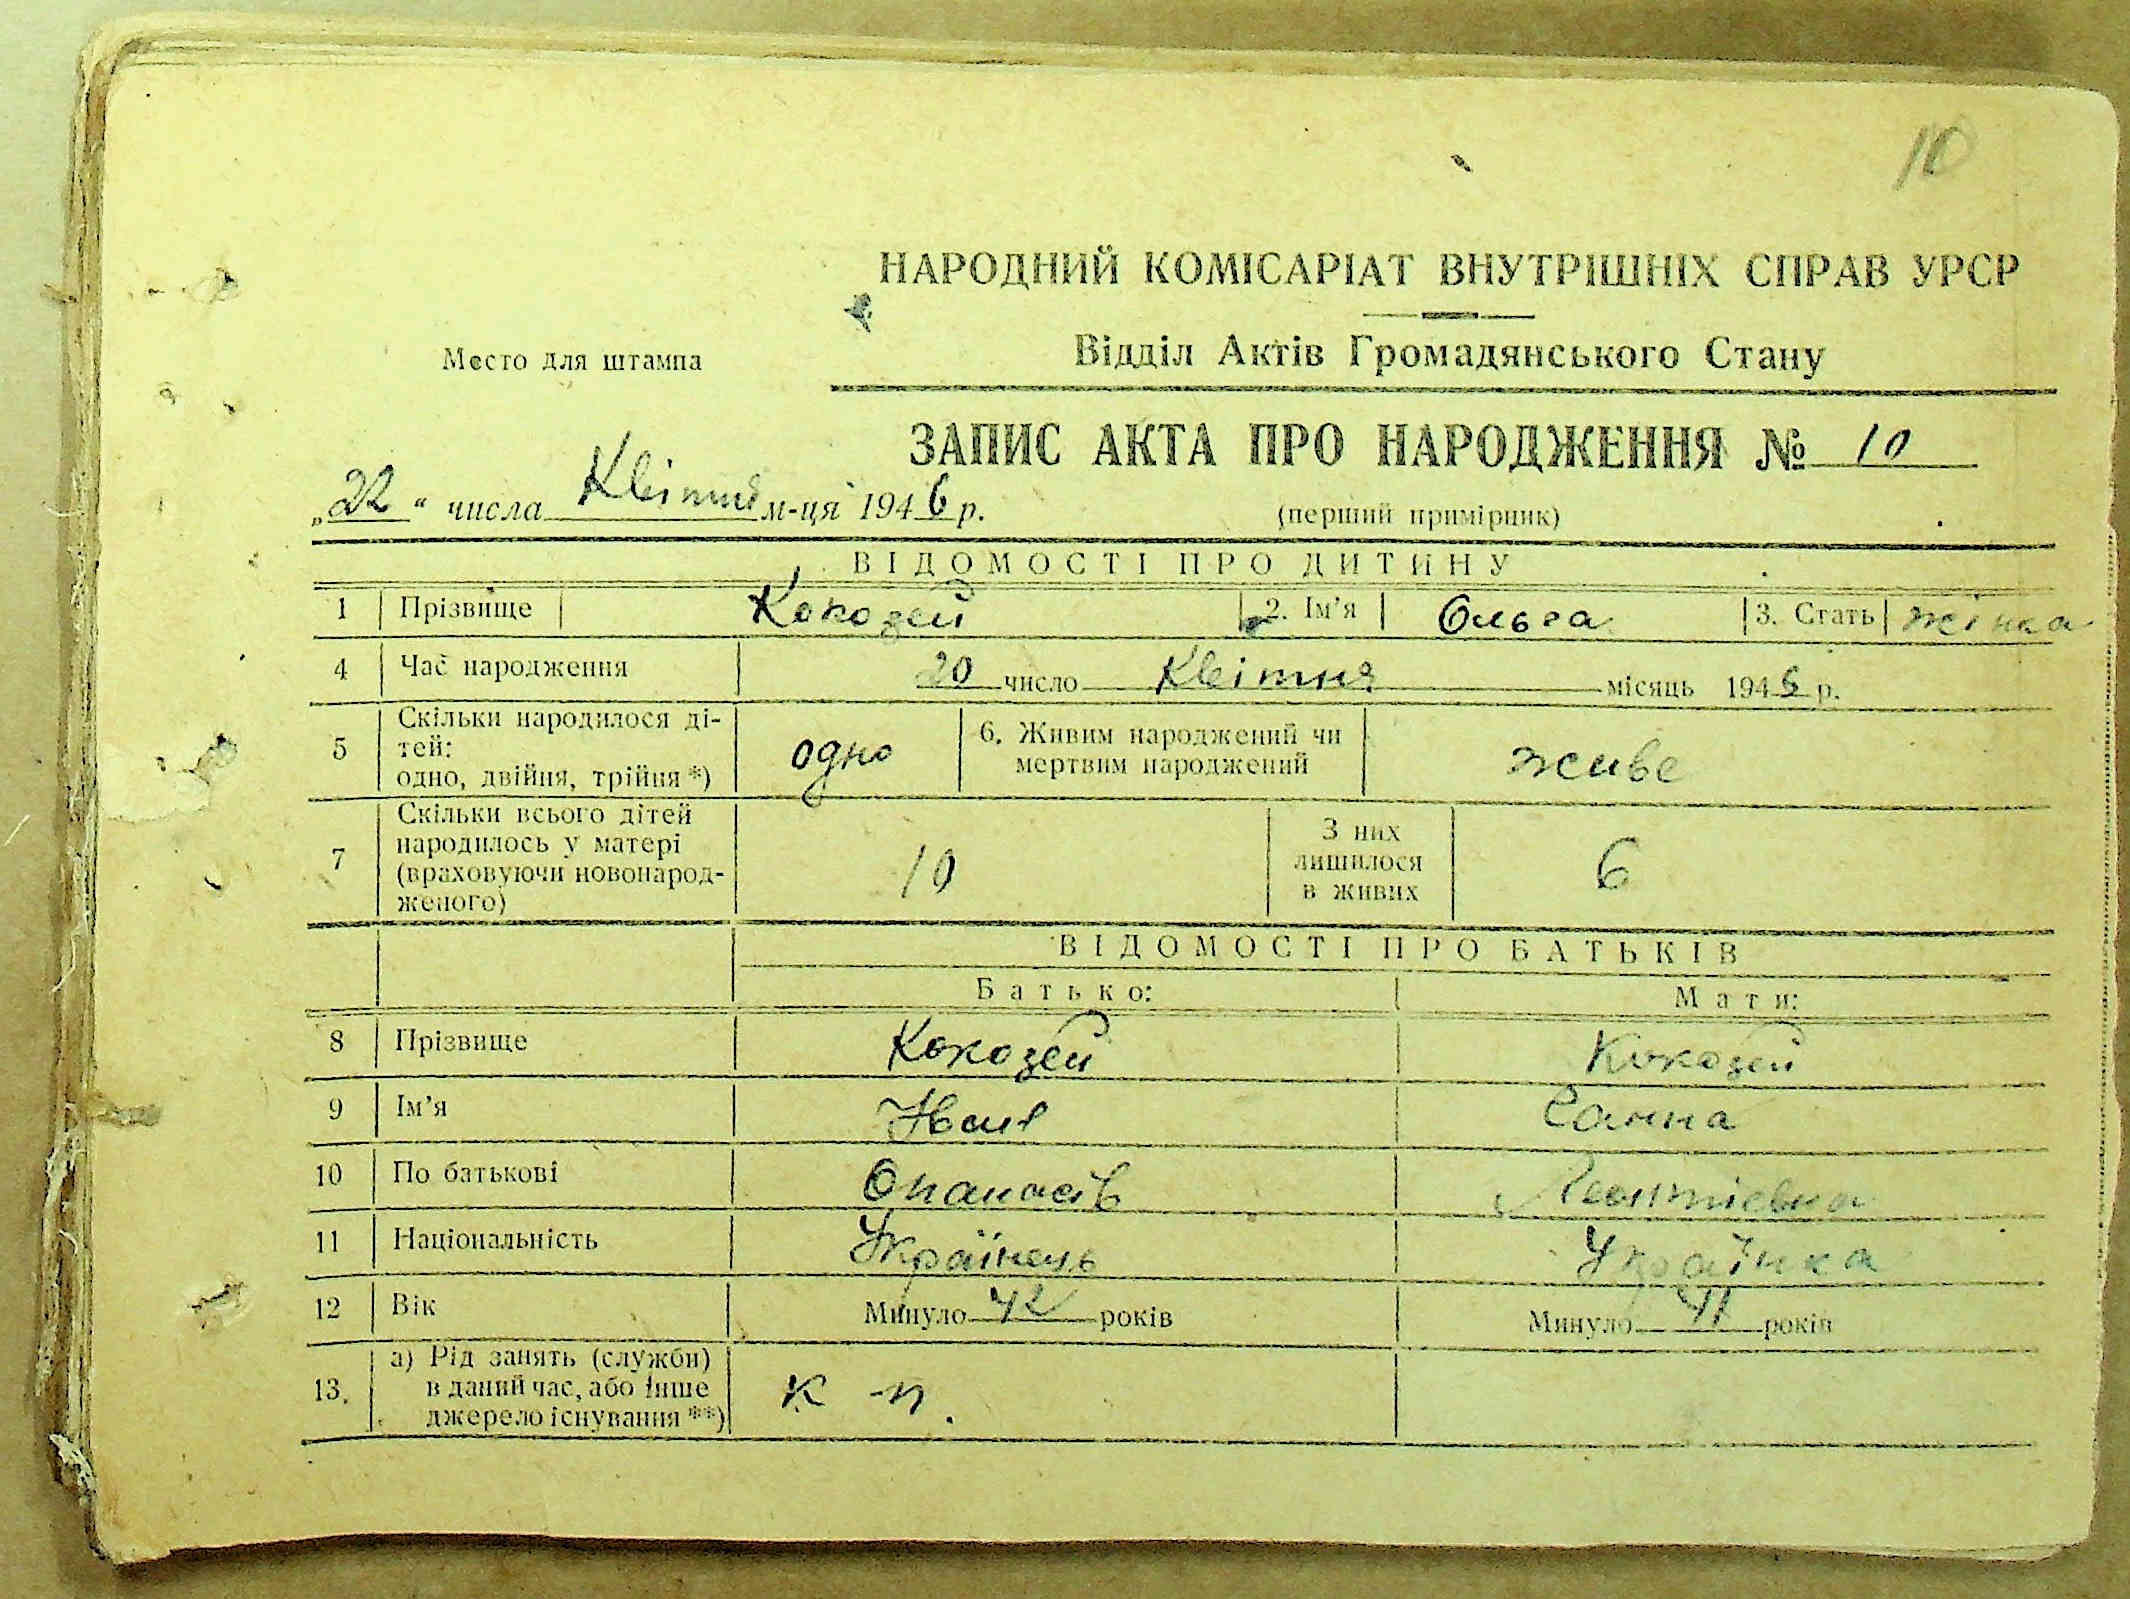 10
НАРОДНИЙ КОМІСАРІАТ ВНУТРІШНІХ СПРАВ УРСР
Место для штампа
Відділ Актів Громадянського Стану
ЗАПИС АКТА ПРО НАРОДЖЕННЯ № 10
„22“ числа Квітня м-ця 1946 р. (перший примірник)
ВІДОМОСТІ ПРО ДИТИНУ
1 Прізвище Кокозей 2. Ім’я Ольга 3. Стать жінка
4 Час народження 20 число Квітня місяць 1946 р.
5 Скільки народилося ді-
тей:
одно, двійня, трійня *) одно 6. Живим народжений чи
мертвим народжений живе
7 Скільки всього дітей
народилось у матері
(враховуючи новонарод-
женого) 10 З них
лишилося
в живих 6
ВІДОМОСТІ ПРО БАТЬКІВ
Батько: Мати:
8 Прізвище Кокозей Кокозей
9 Ім’я Іван Ганна
10 По батькові Опанасів Леонтіевна
11 Національність Українець Українка
12 Вік Минуло 42 років Минуло 41 років
13. а) Рід занять (служби)
в даний час, або інше
джерело існування **) к-п.